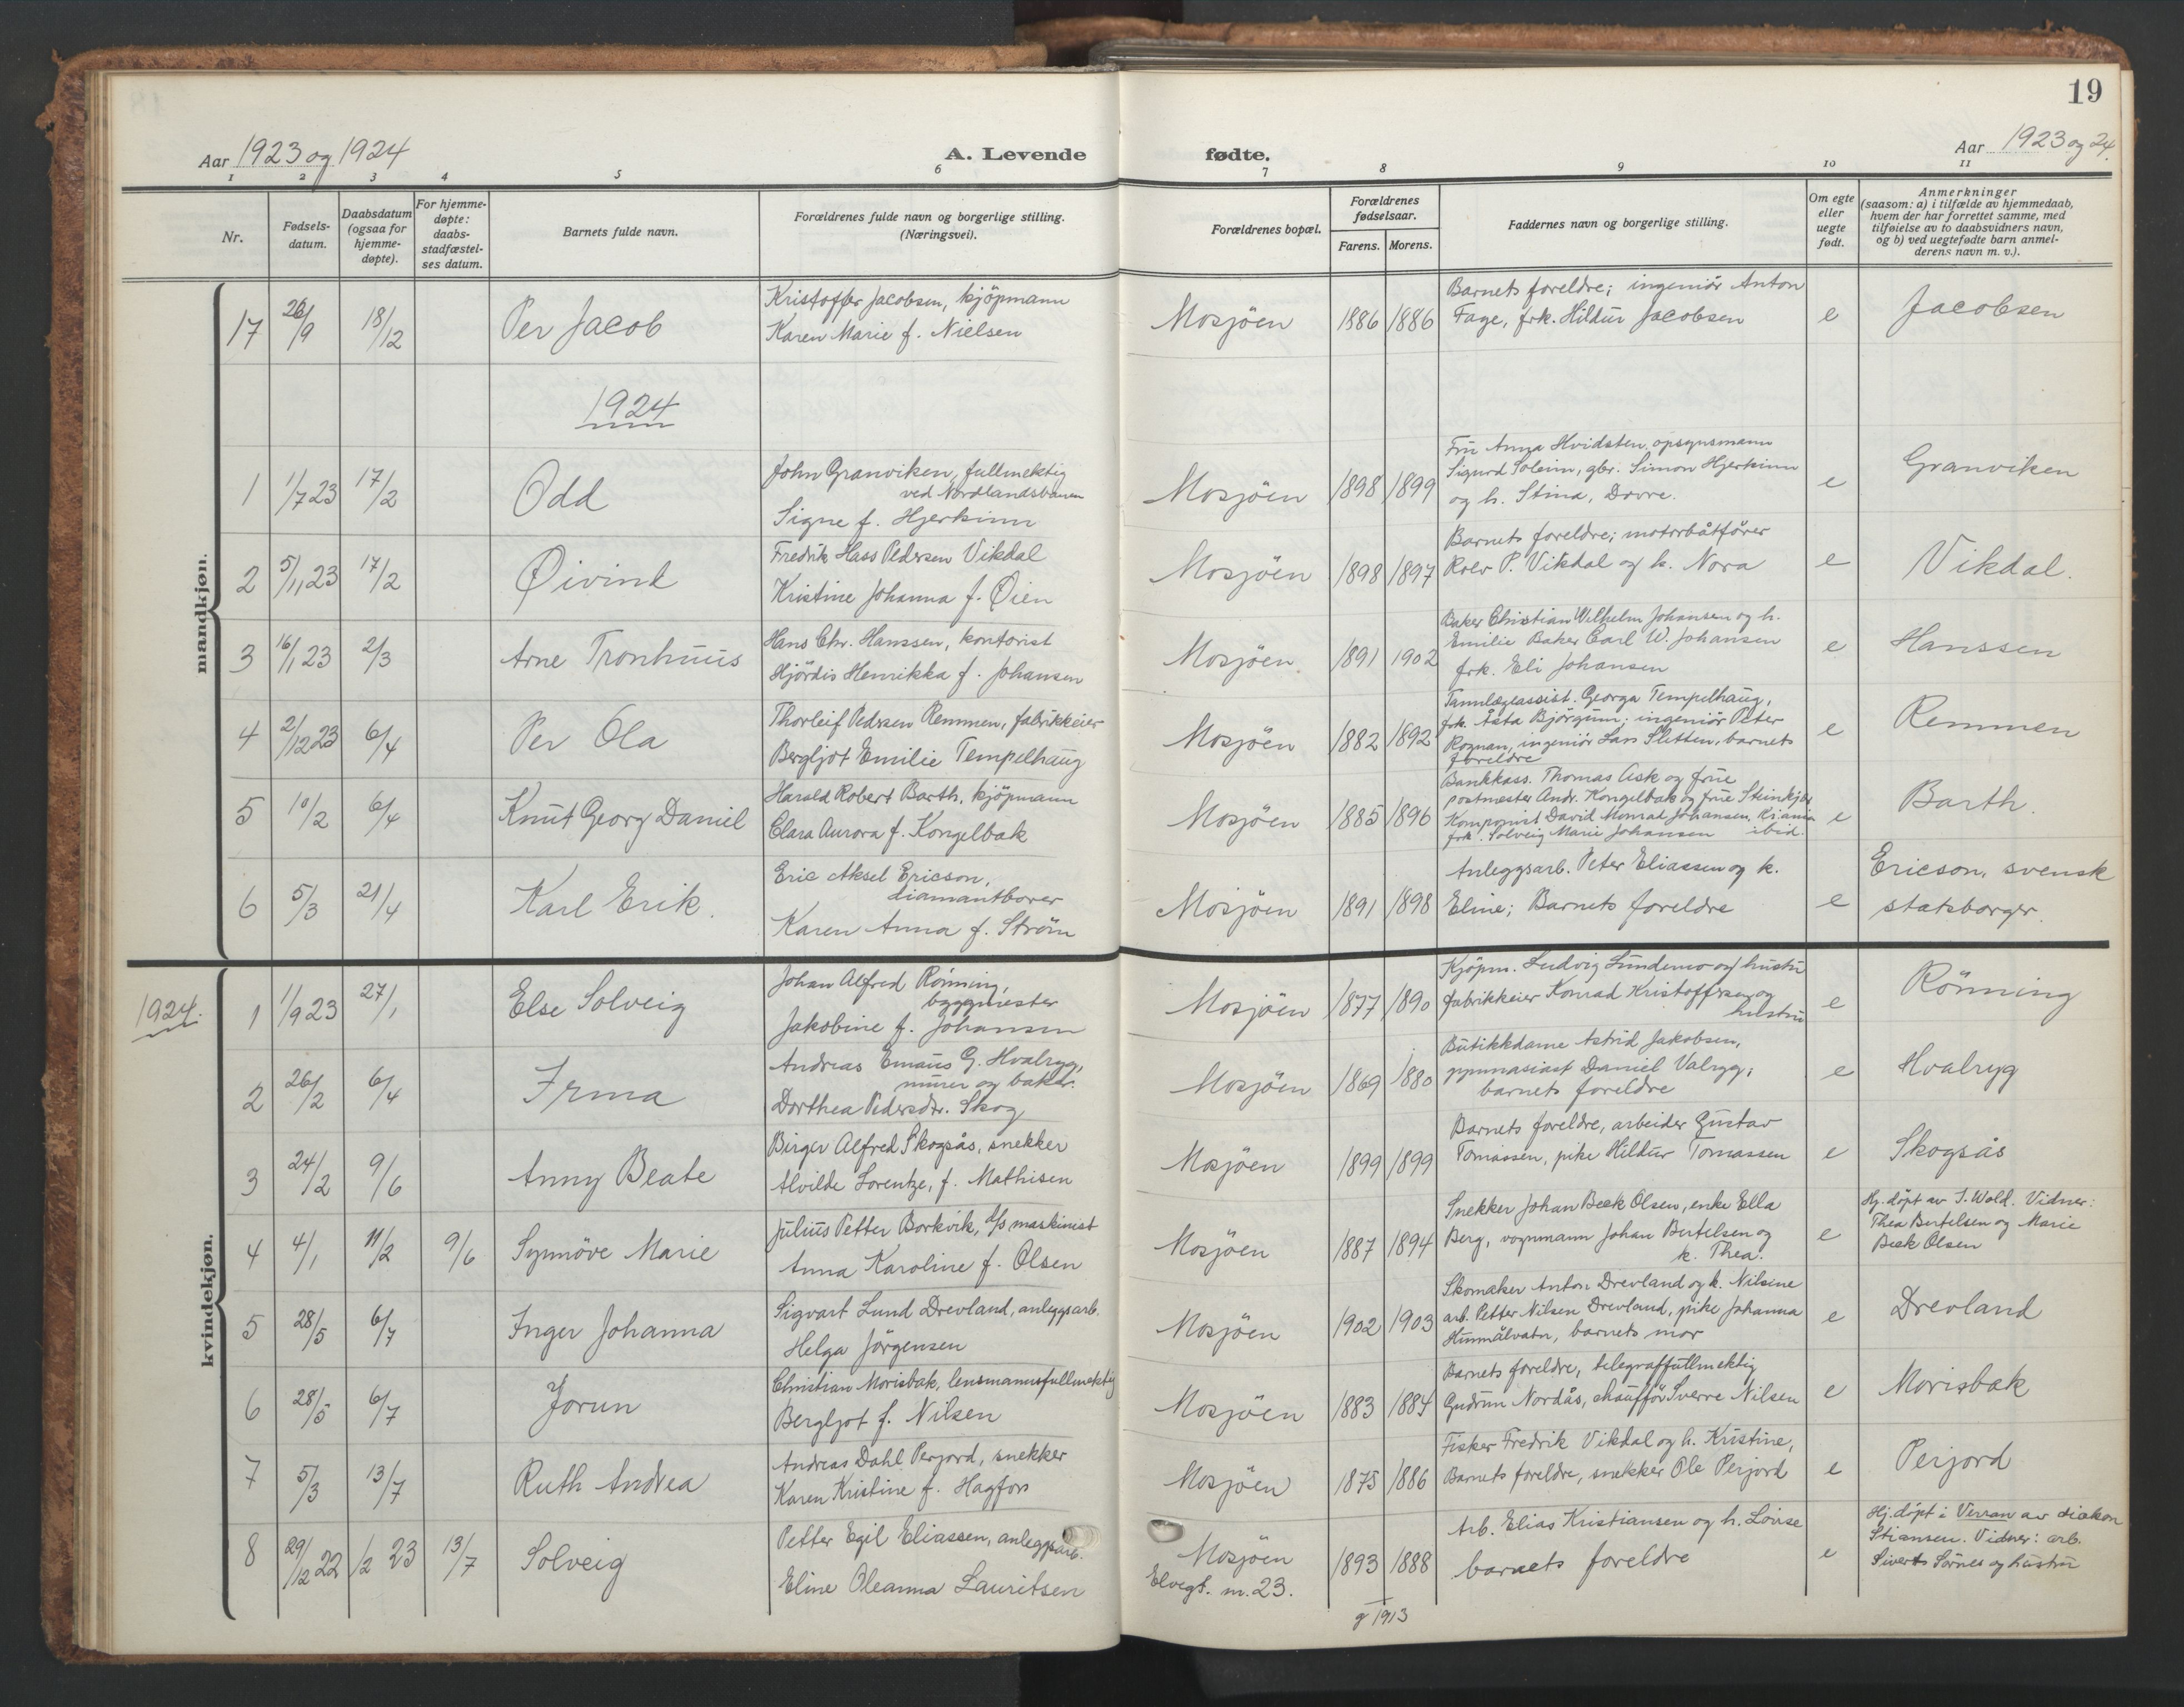 19
Aar 1923 og 1924
A. Levende
fødte.
Aar 1923 og 24.
1 2 3 4 5 6 7 8 9 10 11
Nr.
Fødsels-
datum.
Daabsdatum
(ogsaa for
hjemme-
døpte).
For hjemme-
døpte:
daabs-
stadfæstel-
ses datum.
Barnets fulde navn.
Forældrenes fulde navn og borgerlige stilling.
(Næringsvei).
Forældrenes bopæl.
Forældrenes
fødselsaar.
Farens. Morens.
Faddernes navn og borgerlige stilling.
Om egte
eller
uegte
født.
Anmerkninger
(saasom: a) i tilfælde av hjemmedaab,
hvem der har forrettet samme, med
tilføielse av to daabsvidners navn,
og b) ved uegtefødte barn anmel-
derens navn m. v.).
mandkjøn.
17 26/9 18/12 Per Jacob
Kristoffer Jacobsen, kjöpmann
Karen Marie f. Nielsen
Mosjöen 1886 1886
Barnets foreldre; ingeniör Anton
Fage, frk. Hildur Jacobsen
e Jacobsen
1924
1 1/7 23 17/2 Odd
John Granviken, fullmektig
ved Nordlandsbanen
Signe f. Hjerkinn
Mosjöen 1898 1899
Fru Anna Hvidsten, opsynsmann
Sigurd Soleim, gbr. Simon Hjerkinn
og h. Stina, Dovre.
e Granviken
2 5/11 23 17/2 Øivind
Fredrik Hass Pedersen Vikdal
Kristine Johanna f. Øien
Mosjöen 1898 1897
Barnets foreldre; motorbåtfører
Rolv P. Vikdal og h. Nora
e Vikdal.
3 16/1 23 2/3 Arne Tronhuus
Hans Chr. Hanssen, kontorist
Hjördis Henrikka f. Johansen
Mosjöen 1891 1902
Baker Christian Wilhelm Johansen og h.
Emilie Baker Carl W. Johansen
frk. Eli Johansen
e Hanssen
4 2/12 23 6/4 Per Ola
Thorleif Pedersen Remmen, fabrikkeier
Bergljot Emilie Tempelhaug
Mosjöen 1882 1892
Tannlægeassist. Georga Tempelhaug,
frk. Åsta Bjørgum; ingeniör Peter
Rognan, ingeniör Lars Sletten, barnets
foreldre
e Remmen
5 10/2 6/4 Knut Georg Daniel
Harald Robert Barth, kjöpmann
Clara Aurora f. Kongelbak
Mosjöen 1885 1896
Bankkass. Thomas Ask og frue
postmester Andr. Kongelbak og frue Steinkjer
Komponist David Monrad Johansen, Kr.ania
frk. Solveig Marie Johansen ibid.
e Barth.
6 5/3 21/4 Karl Erik.
Eric Aksel Ericson,
diamantborer
Karen Anna f. Ström
Mosjöen 1891 1898
Anleggsarb. Peter Eliassen og k.
Eline; Barnets foreldre
e Ericson, svensk
statsborger.
kvindekjøn.
1924.
1 1/9 23 27/1 Else Solveig
Johan Alfred Rönning,
byggmester
Jakobine f. Johansen
Mosjöen 1877 1890
Kjöpm. Ludvig Lundemo og hustru
fabrikkeier Konrad Kristoffersen og
hustru
e Rönning
2 26/2 6/4 Irma
Andreas Emaus G. Hvalryg,
murer og baker.
Dorthea Pedersdtr. Skog
Mosjöen 1869 1880
Butikkdame Astrid Jakobsen,
gymnasiast Daniel Valryg;
barnets foreldre
e Hvalryg
3 24/2 9/6 Anny Beate
Birger Alfred Skogsås, snekker
Alvilde Lorentze, f. Mathisen
Mosjöen 1899 1899
Barnets foreldre, arbeider Gustav
Tomassen, pike Hildur Tomassen
e Skogsås
4 4/1 11/2 9/6 Synnöve Marie
Julius Petter Borkvik, d/s maskinist
Anna Karoline f. Olsen
Mosjöen 1887 1894
Snekker Johan Beck Olsen, enke Ella
Berg, vognmann Johan Bertelsen og
k. Thea.
e
Hj. döpt av J. Wold. Vidner:
Thea Bertelsen og Marie
Beck Olsen
5 28/5 6/7 Inger Johanna
Sigvart Lund Drevland, anleggsarb.
Helga Jörgensen
Mosjöen 1902 1903
Skomaker Anton Drevland og k. Nilsine
arb. Petter Nilsen Drevland, pike Johanna
Hunnålvatn, barnets mor
e Drevland
6 28/5 6/7 Jorun
Christian Morisbak, lensmannsfullmektig
Bergljot f. Nilsen
Mosjöen 1883 1884
Barnets foreldre, telegraffullmektig
Gudrun Nordås, chaufför Sverre Nilsen
e Morisbak
7 5/3 13/7 Ruth Andrea
Andreas Dahl Perjord, snekker
Karen Kristine f. Hagfors
Mosjöen 1875 1886
Fisker Fredrik Vikdal og h. Kristine,
Barnets foreldre, snekker Ole Perjord
e Perjord
8 29/12 22 1/2 23 13/7 Solveig
Petter Egil Eliassen, anleggsarb.
Eline Oleanna Lauritsen
Mosjöen
Elvegt. m. 23.
1893 1888
g 1913
Arb. Elias Kristiansen og h. Lovise
barnets foreldre
e
Hj. döpt i Verran av diakon
Stiansen. Vidner: arb.
Sivert Sörnes og hustru